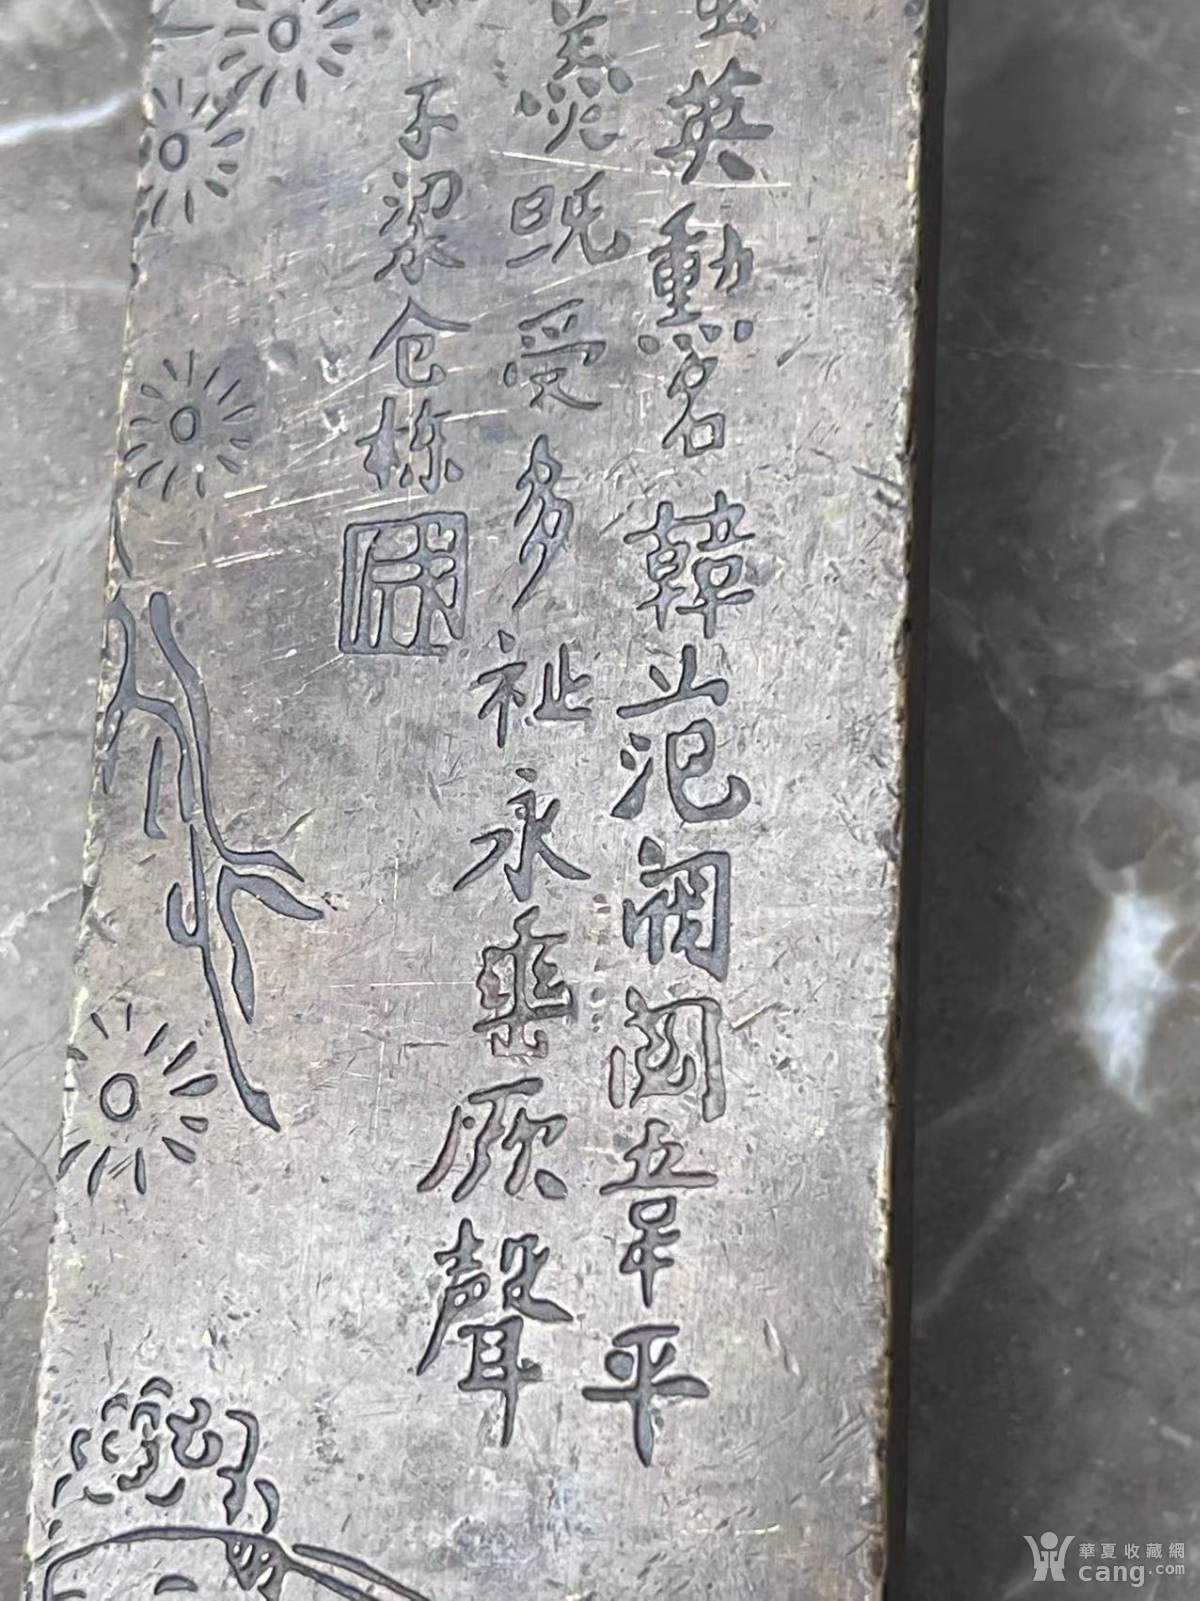 英勳名韓范閥閱韋平
既受多祉永垂厥聲
子梁仓栋
華夏收藏網
cang.com